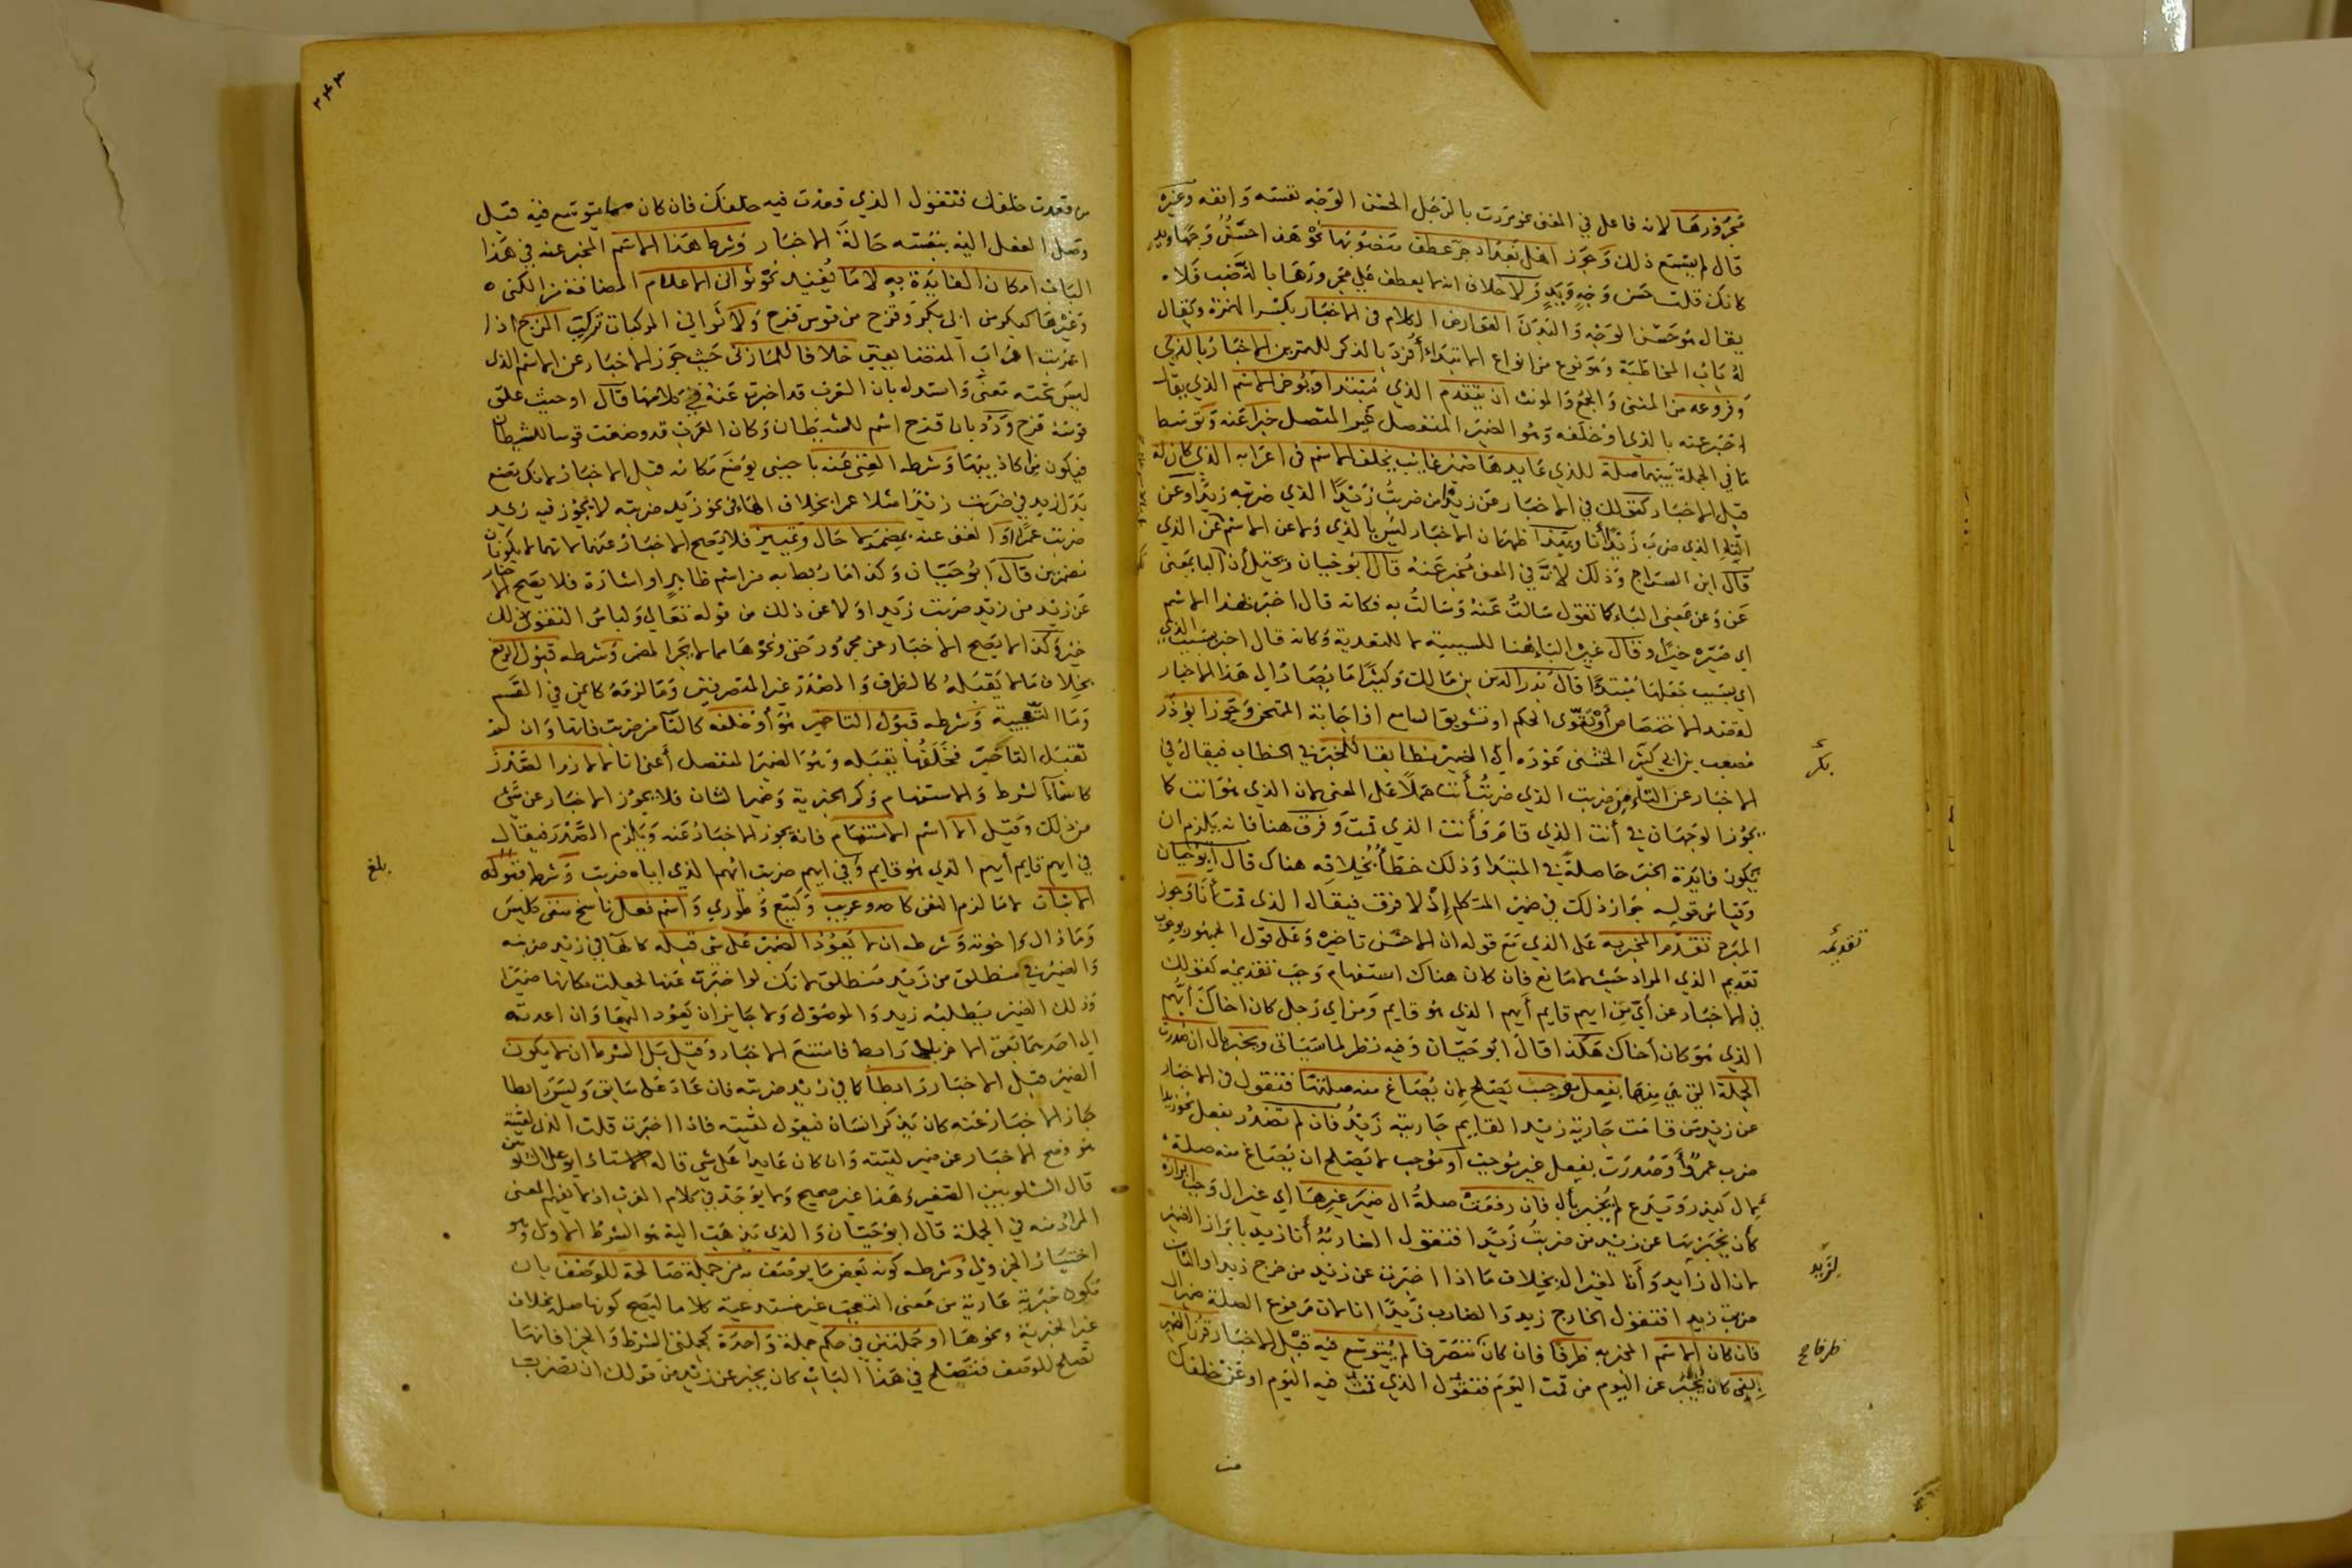 مجرورها لانه فاعل في المعنى نحو مررت بالرجل الحسن الوجه نفسه وانفه وغيره
قال لم يسمع ذلك وجوز اهل بغداد جر عطف منصوبها نحو هذا احسن وجها ويد
كانك قلت حسن وجه ويد ولا خلاف انه لا يعطف على مجرورها بالنصب فلا
يقال هو حسن الوجه والبدن العوارض الكلام في الاخبار بكسر الهمزة ويقال
له باب المخاطبة وهو نوع من انواع الابتداء أفرد بالذكر للتمرين الاخبار بالذي
وفروعه من المثنى والجمع والمونث ان يتقدم الذي مبتدا ويوخر الاسم الذي يقال
اخبر عنه بالذي او خلفه وهو الضمير المنفصل لغير المتصل خبرا عنه وتوسط
ما في الجملة بينهما صلة للذي عايدها ضمير غايب يخلف الاسم في اعرابه الذي كان له
قبل الاخبار كقولك في الاخبار عن زيد من ضربت زيدا الذي ضربته زيد او عن
التاء الذي ضرب زيدا أنا وبهذا ظهر ان الاخبار ليس بالذي ولا عن الاسم عن الذي
قال ابن السراج وذلك لانه في المعنى مخبر عنه قال ابو حيان ويحتمل أن البا بمعنى
عن وعن بمعنى الباء كما تقول سالت عنه وسالت به فكانه قال اخبر بهذا الاسم
اي صيره خبرا وقال غيره الباء هنا للسببية لا للتعدية وكانه قال اخبر بسبب الذي
اي بسبب جعلها مبتدأ قال بدر الدين بن مالك وكثيرا ما يصار الى هذا الاخبار
لقصد الاختصاص أو تقوى الحكم او تشويق السامع او اجابة الممتحن وجوز ابو ذر
مصعب بن ابي بكر الخشنى عوده أي الضمير مطابقا للمخبر في الخطاب فيقال في
الاخبار عن التاء من ضربت الذي ضربت أنت حملا على المعنى لان الذي هو انت كما
يجوز الوجهان في أنت الذي قام وأنت الذي قمت وفرق هنا فانه يلزم ان
تكون فايدة الخبر حاصلة في المبتدا وذلك خطأ بخلافه هناك قال أبو حيان
وقياس قوله جواز ذلك في ضمير المتكلم إذ لا فرق فيقال الذي قمت أنا وجوز
المبرد تقدم المخبر به على الذي مع قوله ان الاحسن تاخيره وعلى قول الجمهور بوجوب
تقديم الذي المراد حيث لا مانع فان كان هناك استفهام وجب تقديمه كقولك
في الاخبار عن أي من ايهم قايم أيهم الذي هو قايم ومن اي رجل كان اخاك أيهم
الذي هو كان أخاك هكذا قال ابو حيان وفيه نظر لما سياتى ويخبر بال ان صدرت
الجملة التي هي منها بفعل موجب يصلح لان يصاغ منه صلتها فتقول في الاخبار
عن زيد من قامت جارية زيد القايم جاريته زيد فان لم تصدر بفعل نحو زيد
ضرب عمرا أو صدرت بفعل غير موجب أو موجب لا يصلح ان يصاغ منه صلة
لال كيذر ويدع لم يخبر بأل فان رفعت صلة ال ضمير غيرها اي غير ال وجب ابرازه
كأن يخبر بها عن زيد من ضربت زيدا فتقول الضاربه أنا زيد بابراز الضمير
لان ال زايد وأنا لغير ال بخلاف ما اذا اخبرت عن زيد من خرج زيد او التاء من
ضربت زيدا فتقول الخارج زيد والضارب زيدا انا لان مرفوع الصلة ضمير ال
فان كان الاسم المخبر به ظرفا فان كان متصرفا لم يتوسع فيه قبل الاخبار قرن الضمير
بفي كان يخبر عن اليوم من قمت اليوم فتقول الذي قمت فيه اليوم او عن خلفك
بكر
تقديمه
لزيد
ظرفا صح
٢٤٤
من قعدت خلفك فتقول الذي قعدت فيه خلفك فان كان مما يتوسع فيه قبل
وصل الفعل اليه بنفسه حالة الاخبار وشرط هذا الاسم المخبر عنه في هذا
الباب امكان الفايدة به لا ما يفيد نحو ثوانى الاعلام المضافة من الكنى
وغيرها كبكر من ابى بكر وقزح من قوس قزح ولا ثواني المركبات تركيب المزج اذا
اعربت اعراب المتضايفين خلافا للمازنى حيث جوز الاخبار عن الاسم الذي
ليس تحته معنى واستدل بان العرب قد اخبرت عنه في كلامها قال او حيث علق
قوسه قزح ورد بان قزح اسم للشيطان وكان العرب قد وضعت قوسا للشيطان
فيكون من اكاذيبها وشرطه الغنى عنه باجنبى يوضع مكانه قبل الاخبار لانك تضع
بدل زيد في ضربت زيدا مثلا عمرا بخلاف الهاء في نحو زيد ضربته لا يجوز فيه زيد
ضربت عمرا او الغنى عنه بمضمر لا حال وتمييز فلا يصح الاخبار عنهما لانهما لا يكونان
مضمرين قال ابو حيان وكذا ما ربط به من اسم ظاهر او اشارة فلا يصح الاخبار
عن زيد من زيد ضربت زيدا ولا عن ذلك من قوله تعالى ولباس التقوى ذلك
خير وكذا لا يصح الاخبار عن مجرور حتى ونحوها مما لا يجر المضمر وشرطه قبول الرفع
بخلاف ما لا يقبله كالظرف والمصدر غير المتصرفين وما لزمه كايمن في القسم
وما التعجبية وشرطه قبول التاخير هو أو خلفه كالتا من ضربت فانها وان لم
تقبل التاخير فخلفها يقبله وهو الضمير المنفصل أعنى انا لا لازم الصدر
كاسماء الشرط والاستفهام وكم الخبرية وضمير الشان فلا يجوز الاخبار عن شئ
من ذلك وقيل الا اسم الاستفهام فانه يجوز الاخبار عنه ويلزم الصدر فيقال
في ايهم قايم أيهم الذي هو قايم وفي ايهم ضربت ايهم الذي اياه ضربت وشرطه قبوله
الاثبات لا ما لزم النفى كاحد وعريب وكتيع وطوري واسم فعل ناسخ منفى كليس
وما زال واخوته وشرطه ان لا يعود الضمير على شى قبله كالها في زيد ضربته
والضمير في منطلق من زيد منطلق لانك لو اخبرت عنها لجعلت مكانها ضميرا
وذلك الضمير يطلبه زيد والموصول ولا جايز ان يعود اليهما وان اعدته
الى احدهما بقى الاخر بلا رابط فامتنع الاخبار وقيل بل الشرط ان لا يكون
الضمير قبل الاخبار رابطا كما في زيد ضربته فان عاد على سابق وليس رابطا
جاز الاخبار عنه كان يذكر انسان فيقول لقيته فاذا اخبرت قلت الذي لقيته
هو وصح الاخبار عن ضمير لقيته وان كان عايدا على شي قاله الاستاذ ابو على الشلوبين
قال الشلوبين الصغير وهذا غير صحيح ولا يوجد في كلام العرب اذ لا يفهم المعنى
المراد منه في الجملة قال ابو حيان والذي يذهب اليه هو الشرط الاول وهو
اختيار الجزولى وشرطه كونه بعض ما يوصف به من جملة صالحة للوصف بان
تكون خبرية عارية من معنى التعجب غير مستدعية كلاما ليصح كونها صلة بخلاف
غير الخبرية ونحوها او جملتين في حكم جملة واحدة كجملتى الشرط والجزا فانها
تصلح للوصف فتصلح في هذا الباب كان يخبر عن زيد من قولك ان تضرب
بلغ